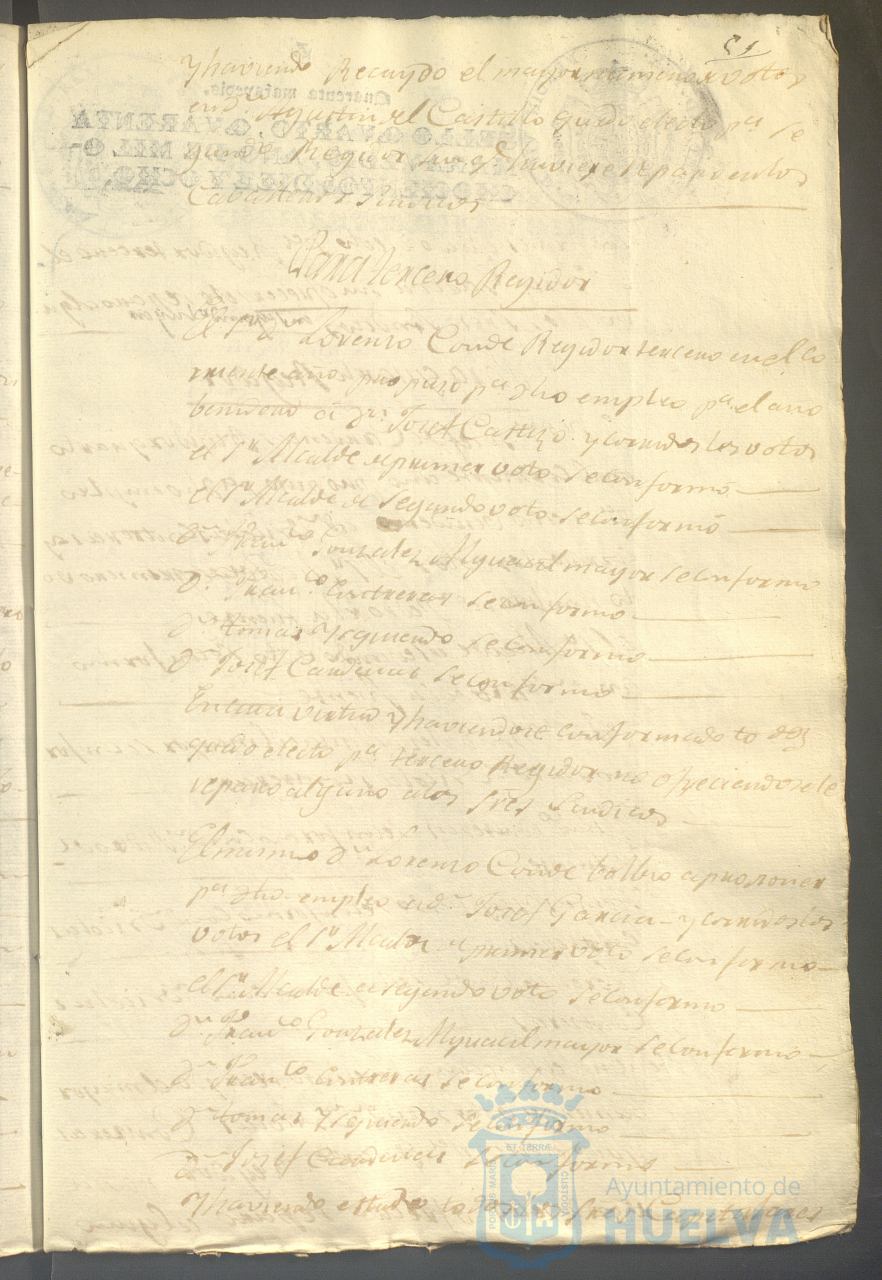 51
y haviendo Recaydo el mayor numero de votos
en Dn Agustin del Castillo quedo electo pa. se
gundo Regidor sin qe. huviese reparo en los
Cavalleros Sindicos
Para tercero Regidor
El Sr. Dn. Lorenzo Conde Regidor tercero en el co
rriente año propuso pa. dho empleo pa. el año
benidero a dn. Josef Castizo y corridos los votos
el Sr. Alcalde de primer voto se conformó
el Sr. Alcalde de segundo voto se conformó
Dn. Franco. Gonzalez Alguacil mayor se conformo
Dn. Franco. Contreras se conformo
Dn. tomas Yzquierdo se conformo
Dn. Josef Cardenas se conformo
En cuia virtud y haviendose conformado todos
quedo electo pa. tercero Regidor no ofreciendosele
reparo alguno a los Sres. Sindicos
El mismo Dn. Lorenzo Conde bolbio a proponer
pa. dho. empleo a dn. Josef Garcia y corridos los
votos el Sr. Alcalde de primer voto se conformo
el Sr. Alcalde de segundo voto se conformo
Dn. Franco. Gonzalez Alguacil mayor se conformo
Dn. Franco. Contreras se conformo
Dn. tomas Yzquierdo se conformo
Dn. Josef Cardenas se conformo
y haviendo estado todos los Sres. Capitulares
PORTUS MARIS ET TERRÆ CUSTODIA
Ayuntamiento de
HUELVA